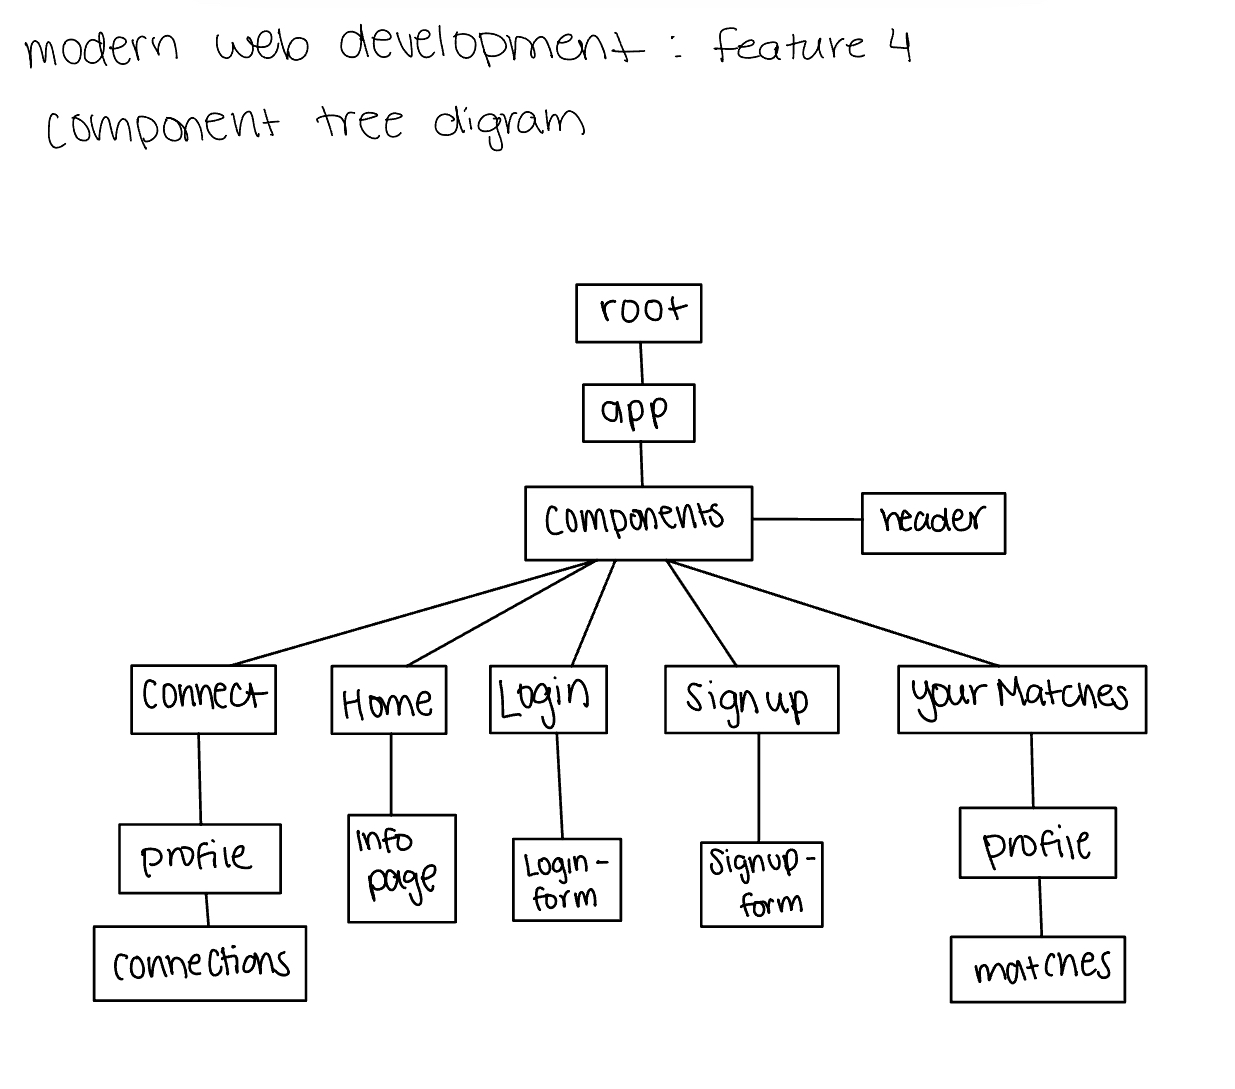 modern web development : feature 4
component tree digram
root
app
components
header
connect
Home
Login
Sign up
your Matches
profile
Info
page
Login-
form
Signup-
form
profile
connections
matches